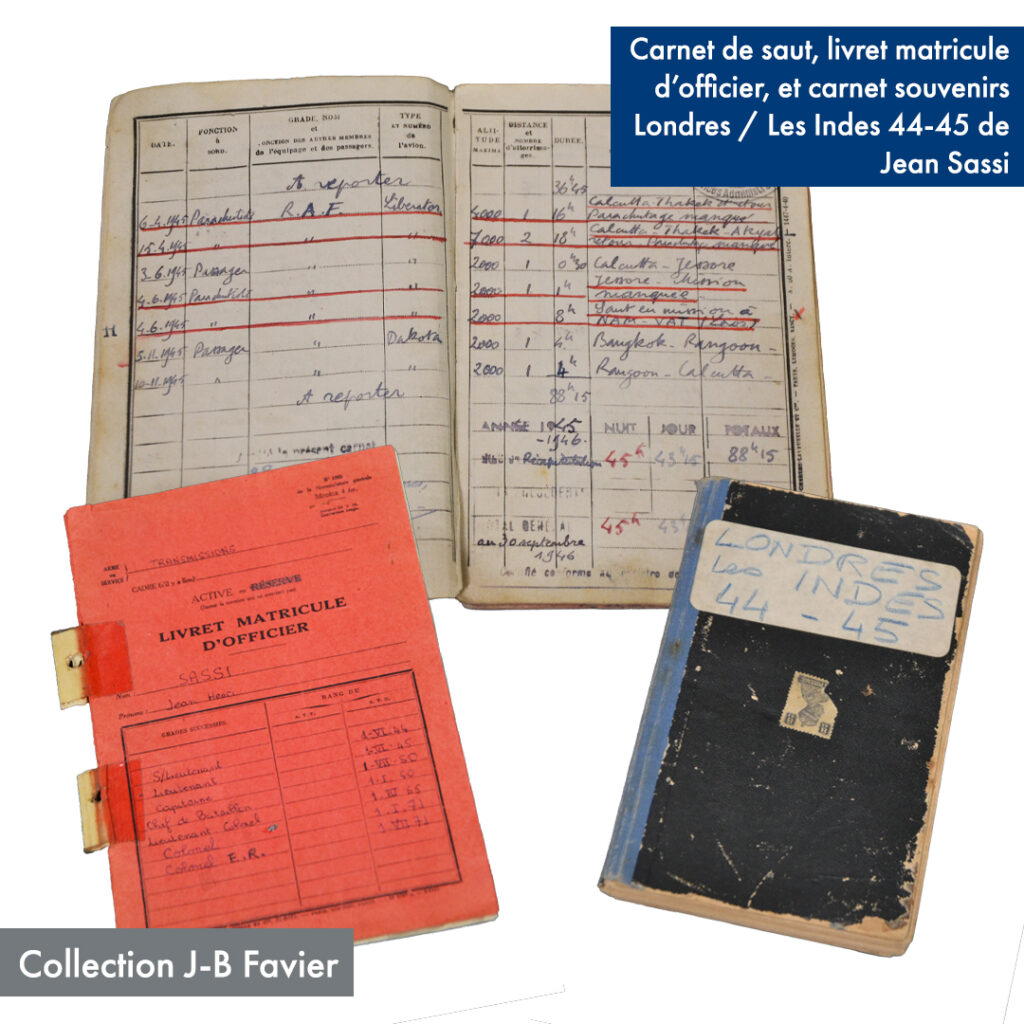 Carnet de saut, livret matricule
d'officier, et carnet souvenirs
Londres / Les Indes 44-45 de
Jean Sassi
DATE.
FONCTION
à
BORD.
GRADE, NOM
et
FONCTION DES AUTRES MEMBRES
de l'équipage et des passagers.
TYPE
ET NUMÉRO
de l'avion.
A reporter
6-4.1945 Parachutiste R.A.F. Liberator
15.4.1945 " " "
3.6.1945 Passager " "
4.6.1945 Parachutiste " "
H 4.6.1945 " "
5.11.1945 Passager " Dakota
10-11.1945 " " "
A reporter
le présent carnet
ALTI-
TUDE
MAXIMA
DISTANCE
et
NOMBRE
d'atterrissages.
DURÉE.
36h45
4000 1 16h Calcutta-Thakek et retour
Parachutage manqué
7000 2 18h Calcutta-Thakek-Akyab
retour Parachutage manqué
2000 1 0h30 Calcutta - Jessore
2000 1 1h Jessore - Mission
manquée
2000 8h Saut en mission à
NAM-VAT (Laos)
2000 1 4h Bangkok - Rangoon -
2000 1 4h Rangoon - Calcutta -
88h15
ANNÉE 1945 NUIT JOUR TOTAUX
-1946- 45h 43h15 88h15
Récapitulation
TOTAL GENERAL 45h 43h
au 30 septembre
1946
N°
de la Nomenclature générale
ARME
ou
SERVICE
TRANSMISSIONS
CADRE (s'il y a lieu)
ACTIVE ou RÉSERVE
LIVRET MATRICULE
D'OFFICIER
Nom : SASSI
Prénoms : Jean Henri
GRADES SUCCESSIFS
RANG DU
A.T.T.
A.T.D.
S/Lieutenant 1-VI-44
Lieutenant 1-VI-45
Capitaine 1-VII-50
Chef de Bataillon 1-I-60
Lieutenant Colonel
Colonel 1.I.71
Colonel E.R. 1 VII 71
LONDRES
Les INDES
44 - 45
Collection J-B Favier